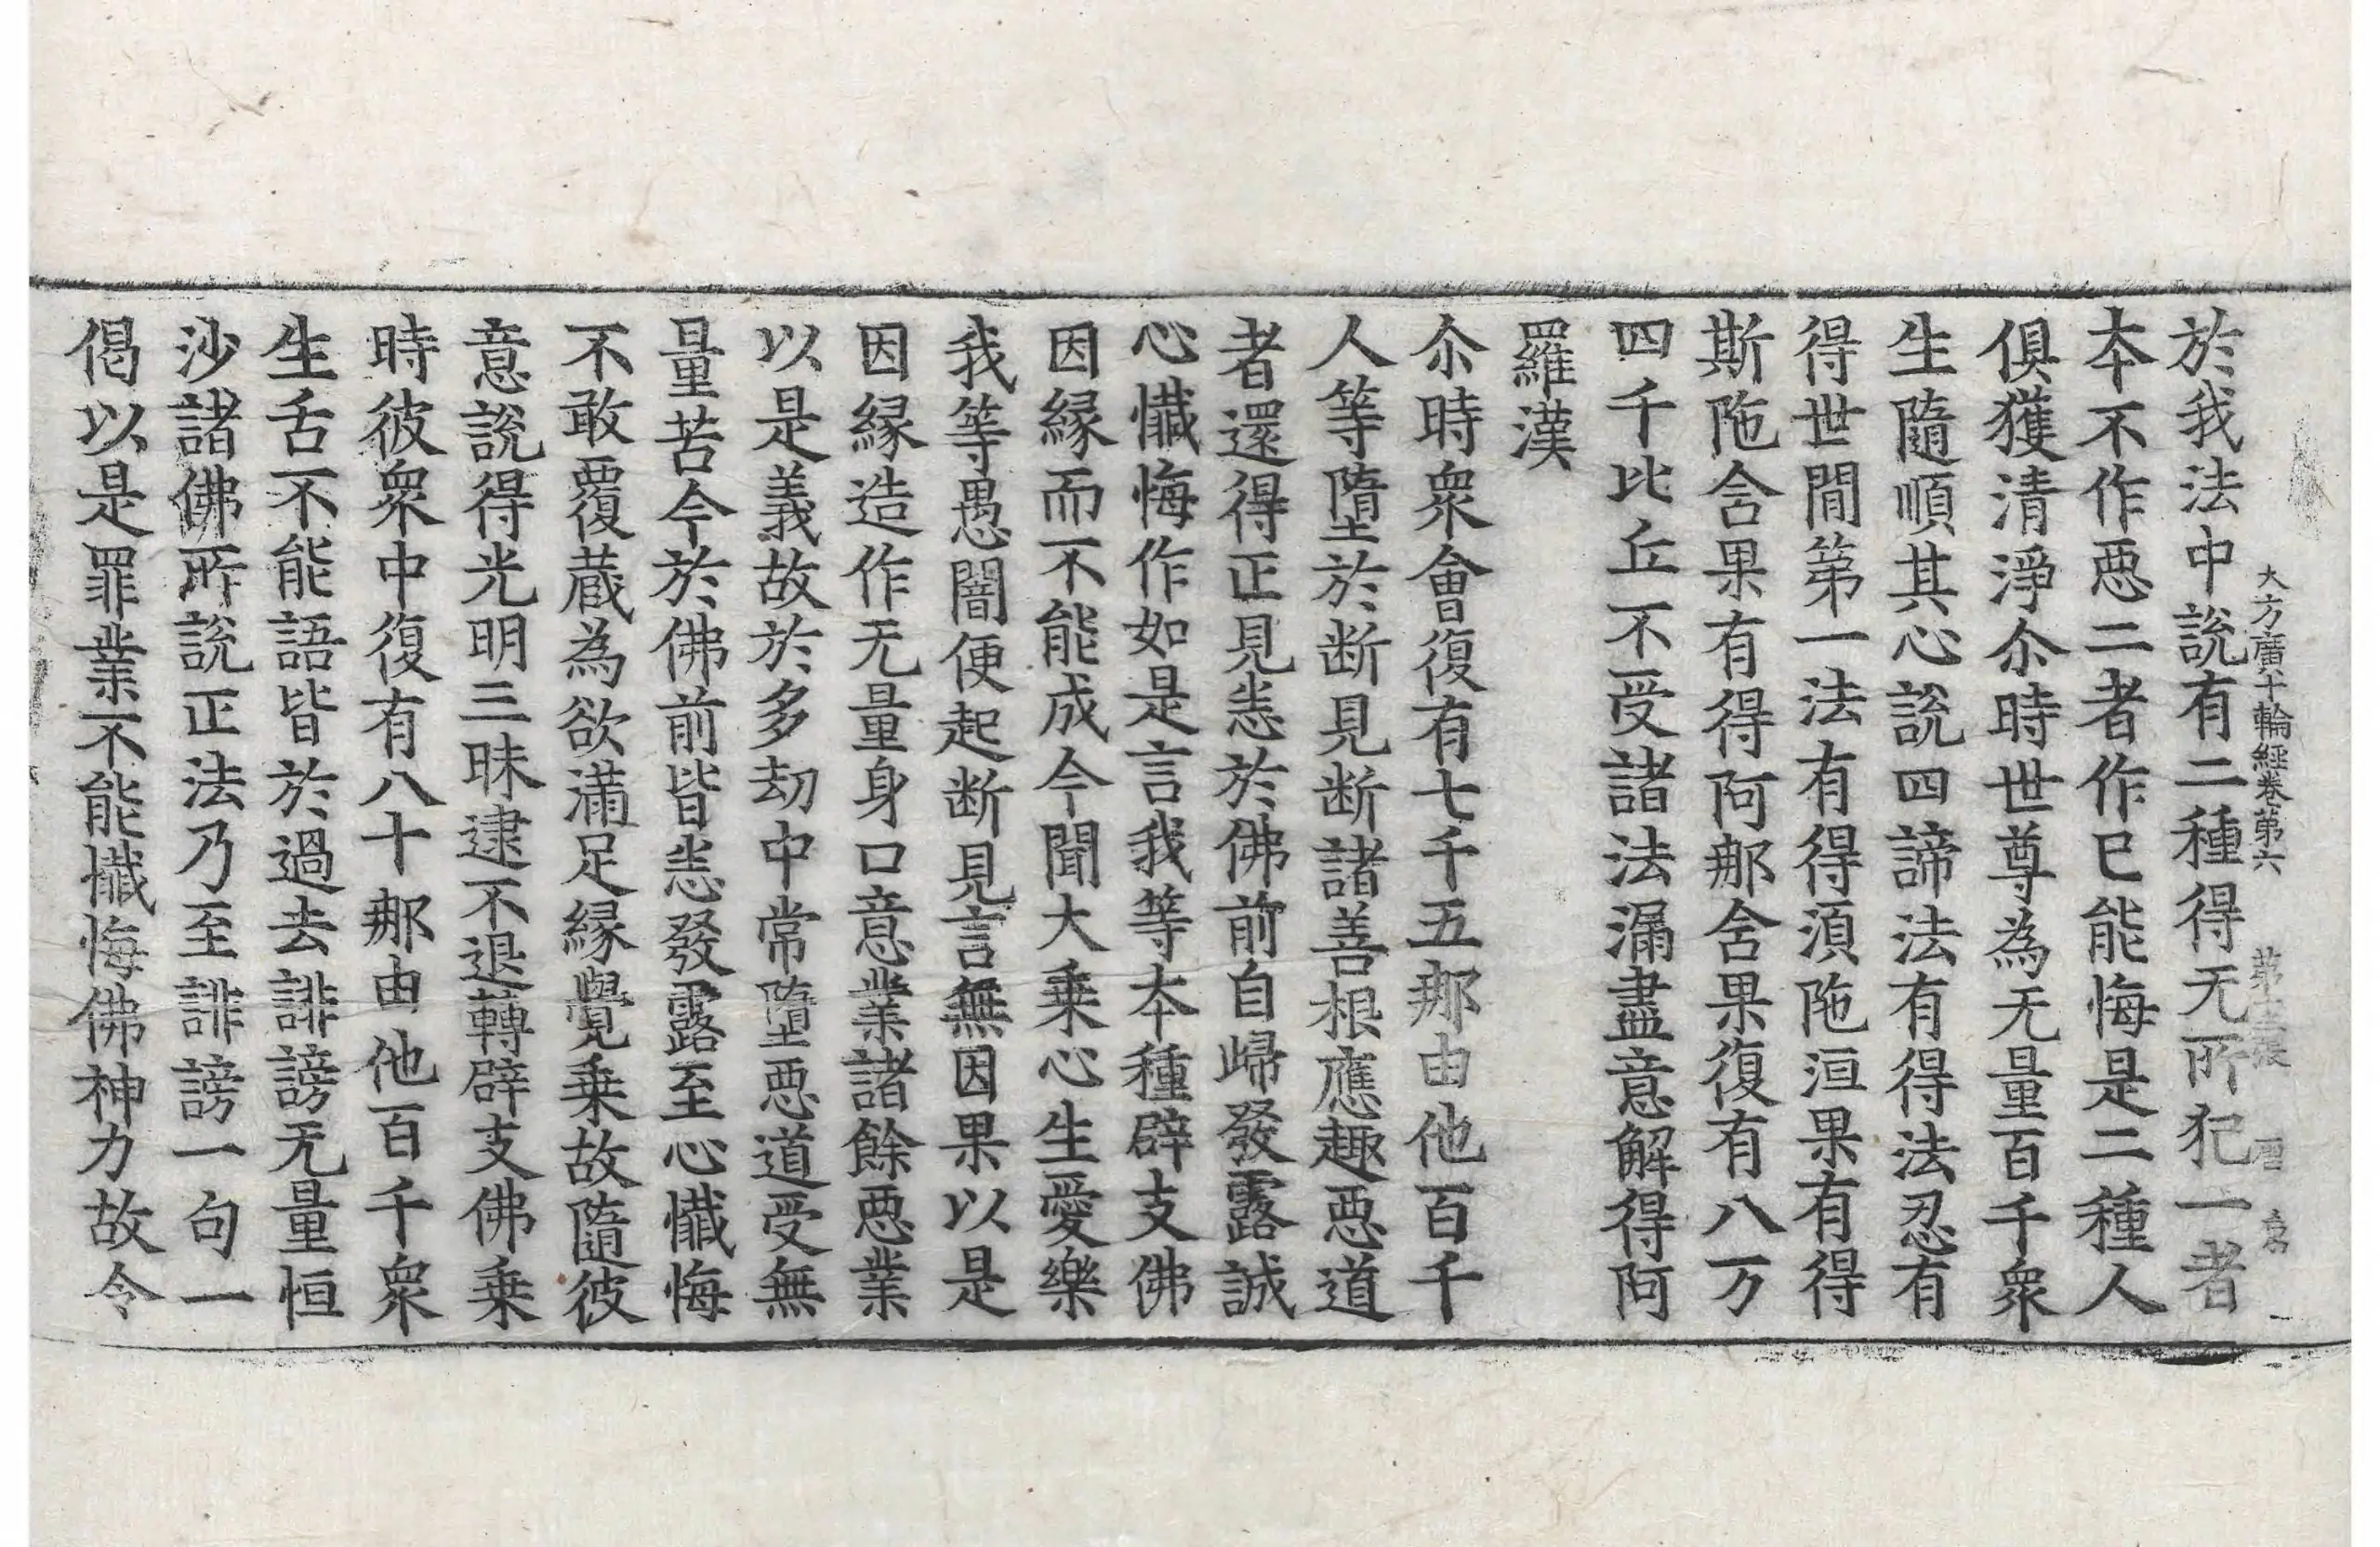 大方廣十輪經卷第六 第 張
於我法中說有二種得无所犯一者
本不作惡二者作已能悔是二種人
俱獲清淨尒時世尊為无量百千衆
生隨順其心說四諦法有得法忍有
得世間第一法有得湏陁洹果有得
斯陁含果有得阿那含果復有八万
四千比丘不受諸法漏盡意解得阿
羅漢
尒時衆會復有七千五那由他百千
人等墮於断見断諸善根應趣惡道
者還得正見悉於佛前自歸發露誠
心懺悔作如是言我等本種辟支佛
因緣而不能成今聞大乗心生愛樂
我等愚闇便起断見言無因果以是
因緣造作无量身口意業諸餘惡業
以是義故於多劫中常墮惡道受無
量苦今於佛前皆悉發露至心懺悔
不敢覆蔵為欲滿足緣覺乗故隨彼
意說得光明三昧逮不退轉辟支佛乗
時彼衆中復有八十那由他百千衆
生舌不能語皆於過去誹謗无量恒
沙諸佛所說正法乃至誹謗一句一
偈以是罪業不能懺悔佛神力故令